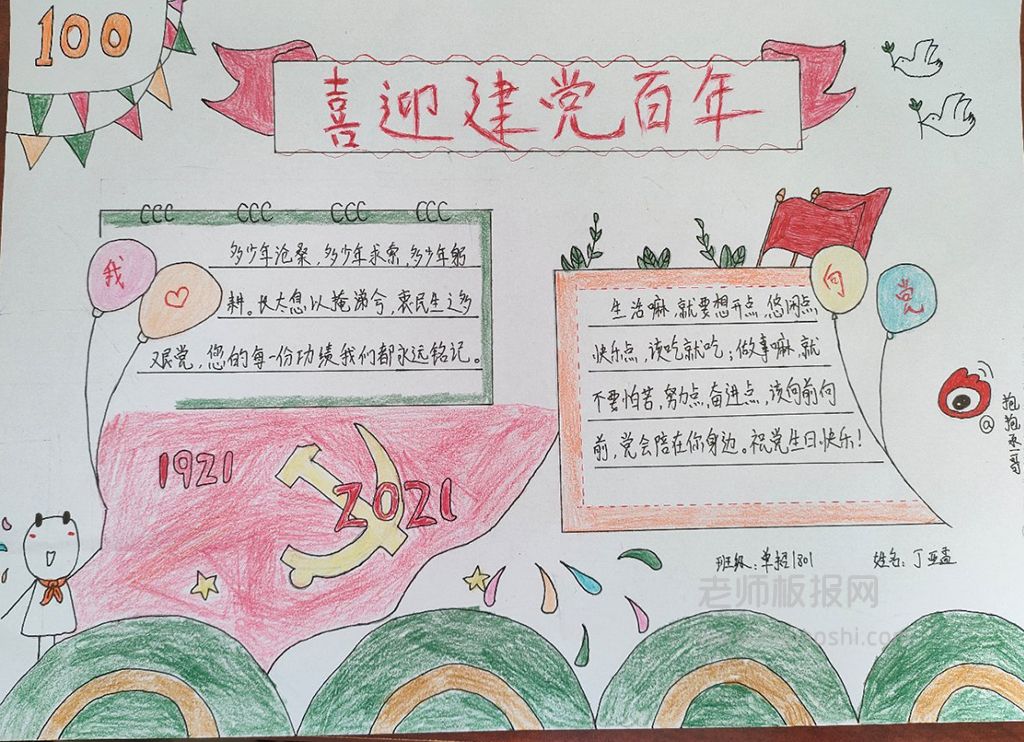 100
喜迎建党百年
CCC CCC CCC CCC
我
多少年沧桑,多少年求索,多少年躬
耕。长太息以掩涕兮,哀民生之多
艰党,您的每一份功绩我们都永远铭记。
向
党
生活嘛,就要想开点,悠闲点
快乐点,该吃就吃;做事嘛,就
不要怕苦,努力点,奋进点,该向前向
前,党会陪在你身边。祝党生日快乐!
1921
2021
@
抱抱
哥
班级:单招1801
姓名:丁亚孟
老师板报网